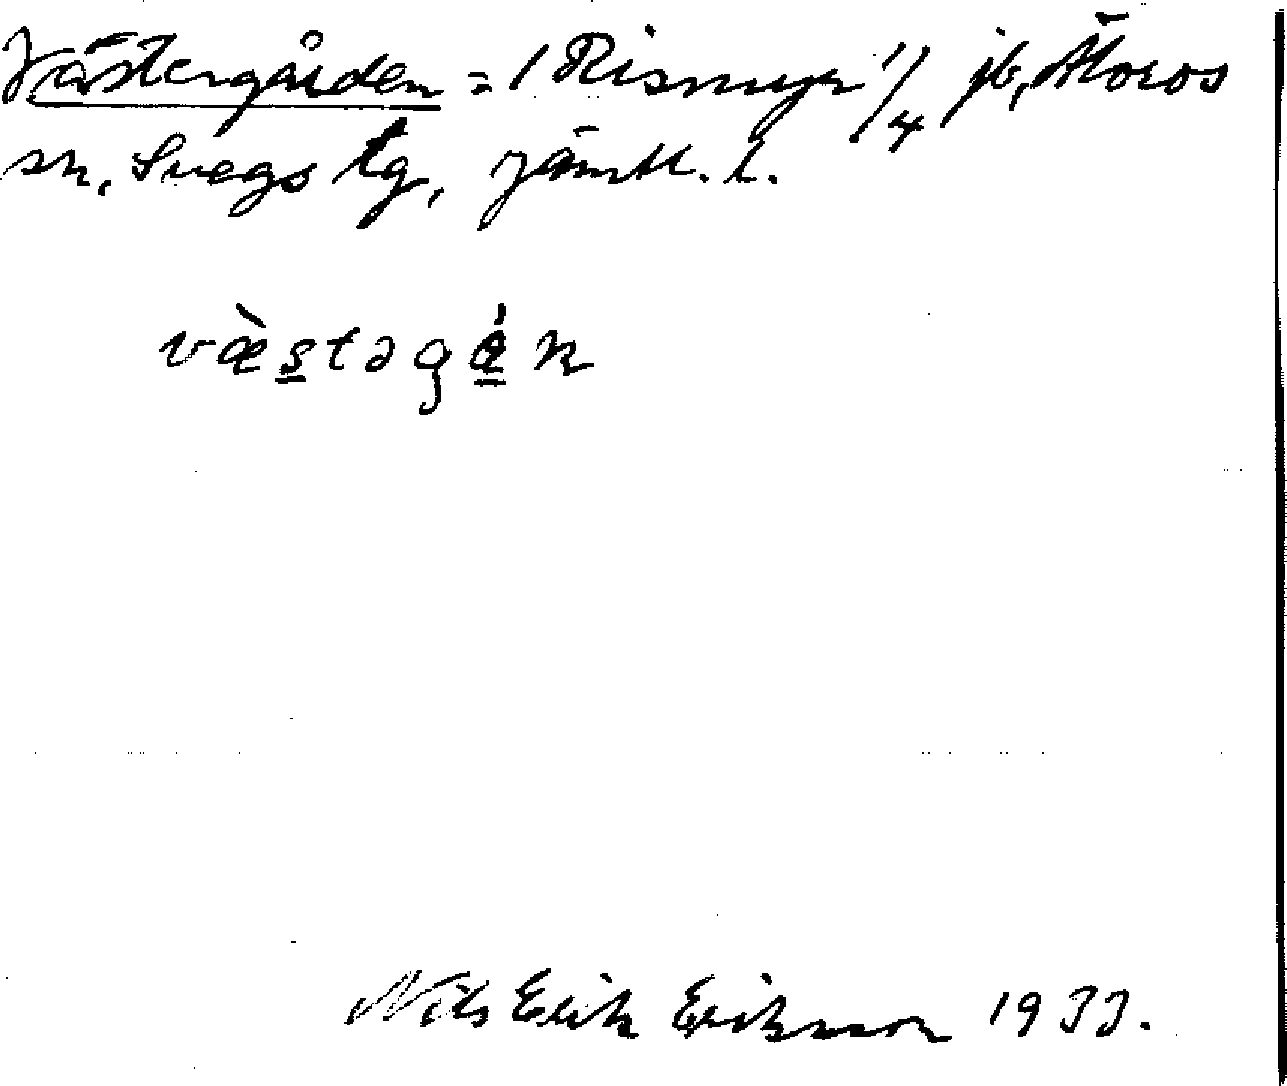 Västergården = 1 Rismyr 1/4 jb, Älvros
sn, Svegs tg, Jämtl. l.
væ̀s̲təgá̲n
Nils Erik Erikson 1933.